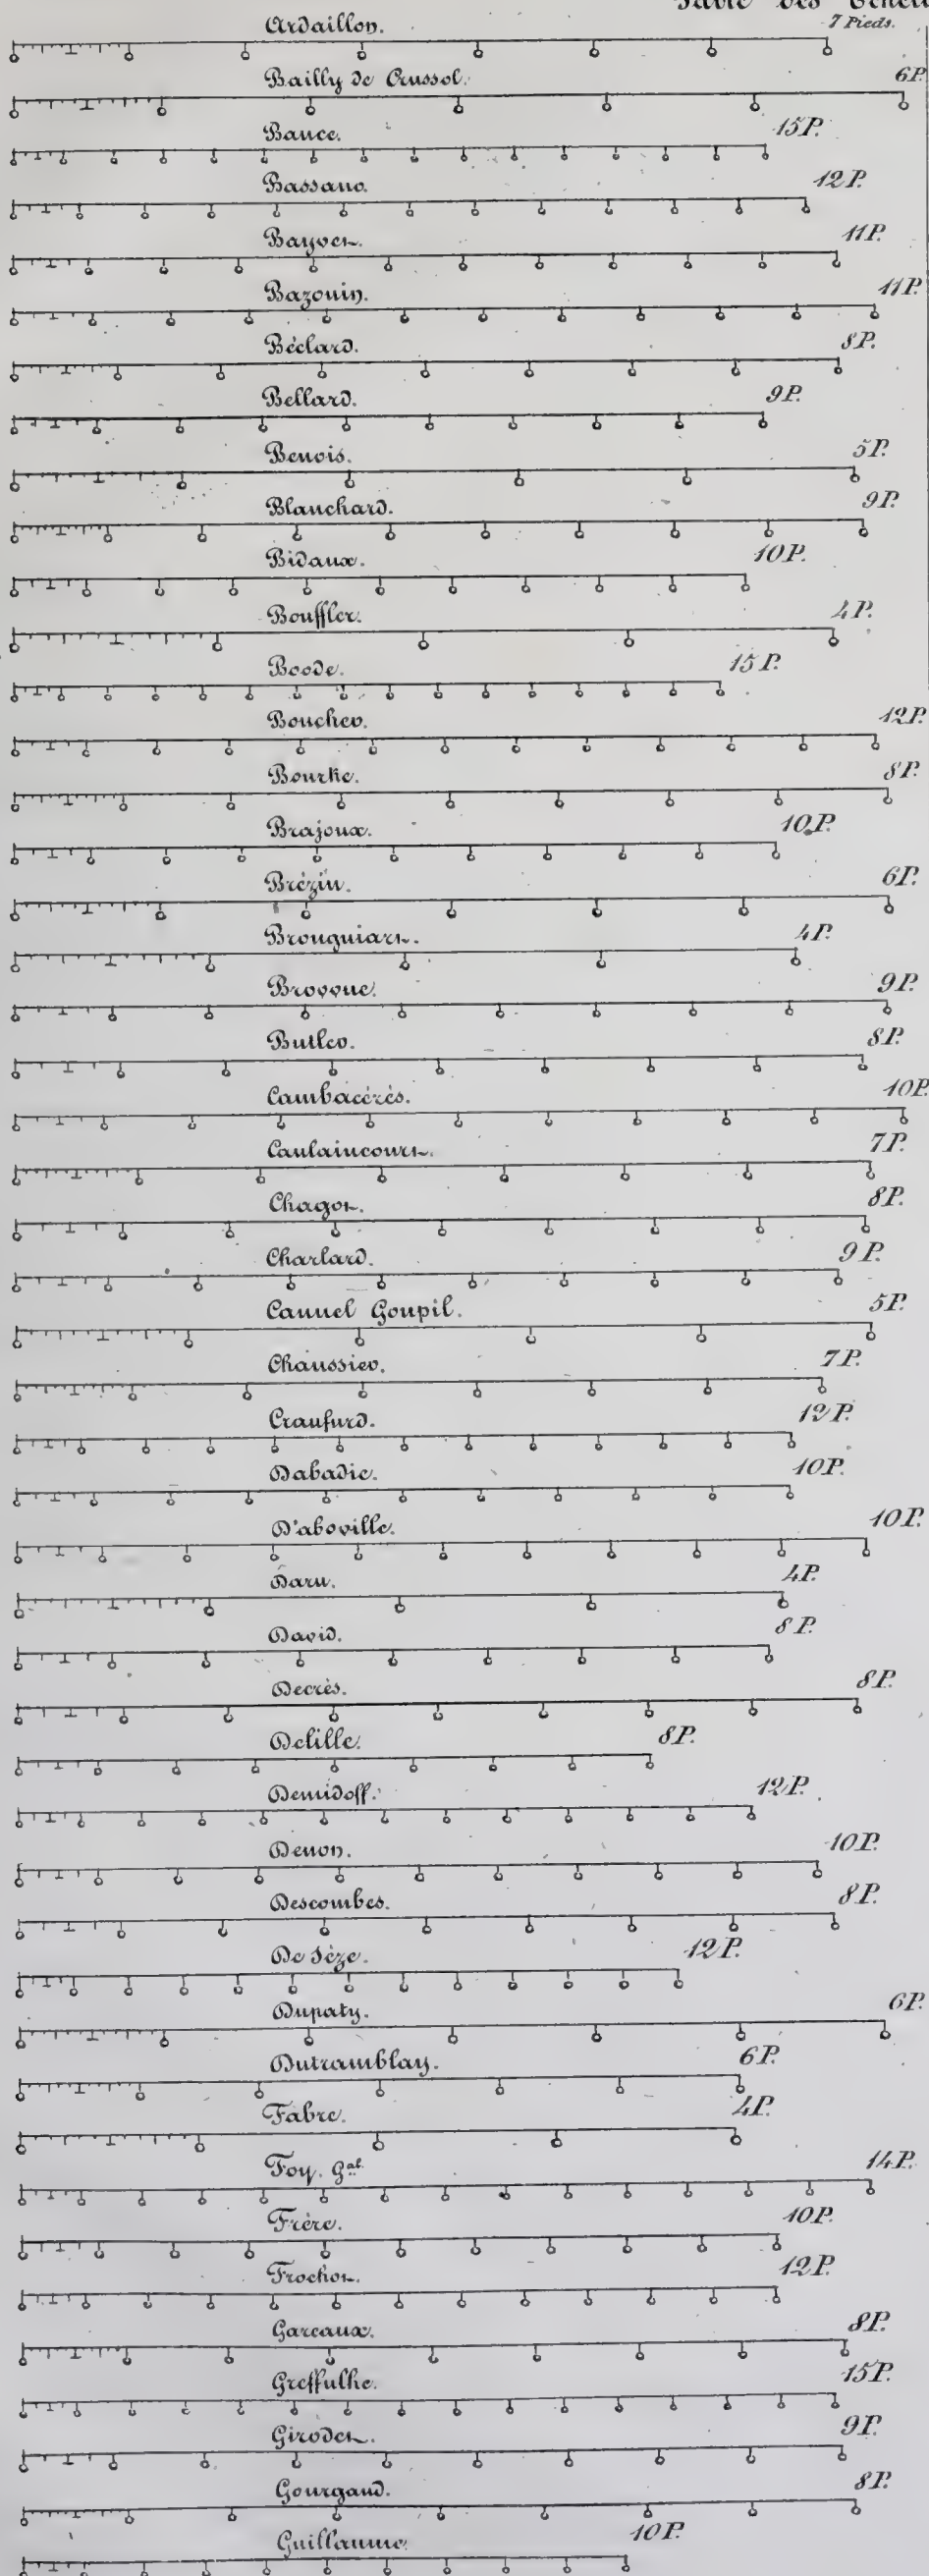 Table des Echell
Ardaillon. 7 Pieds.
Bailly de Crussol. 6P.
Bance. 15P.
Bassano. 12P.
Bayvet. 11P.
Bazouin. 11P.
Béclard. 8P.
Bellard. 9P.
Benois. 5P.
Blanchard. 9P.
Bidaux. 10P.
Bouffler. 4P.
Boode. 15P.
Boucher. 12P.
Bourke. 8P.
Brajoux. 10.P.
Brézin. 6P.
Brongniart. 4P.
9P.
Butler. 8P.
Cambacérès. 10P.
Caulaincourt. 7P.
Chagot. 8P.
Charlard. 9P.
Cannel Goupil. 5P.
Chaussier. 7P.
Craufurd. 12P.
Dabadie. 10P.
D'aboville. 10P.
Daru. 4P.
David. 8P.
Decrès. 8P.
Delille. 8P.
Demidoff. 12P.
Denon. 10P.
Descombes. 8P.
De Sèze. 12P.
Dupaty. 6P.
Dutramblay. 6P.
Fabre. 4P.
Foy. Gal. 14P.
Frère. 10P.
Frochot. 12P.
Gareaux. 8P.
Greffulhe. 15P.
Girodet. 9P.
Gourgaud. 8P.
Guillaume. 10P.